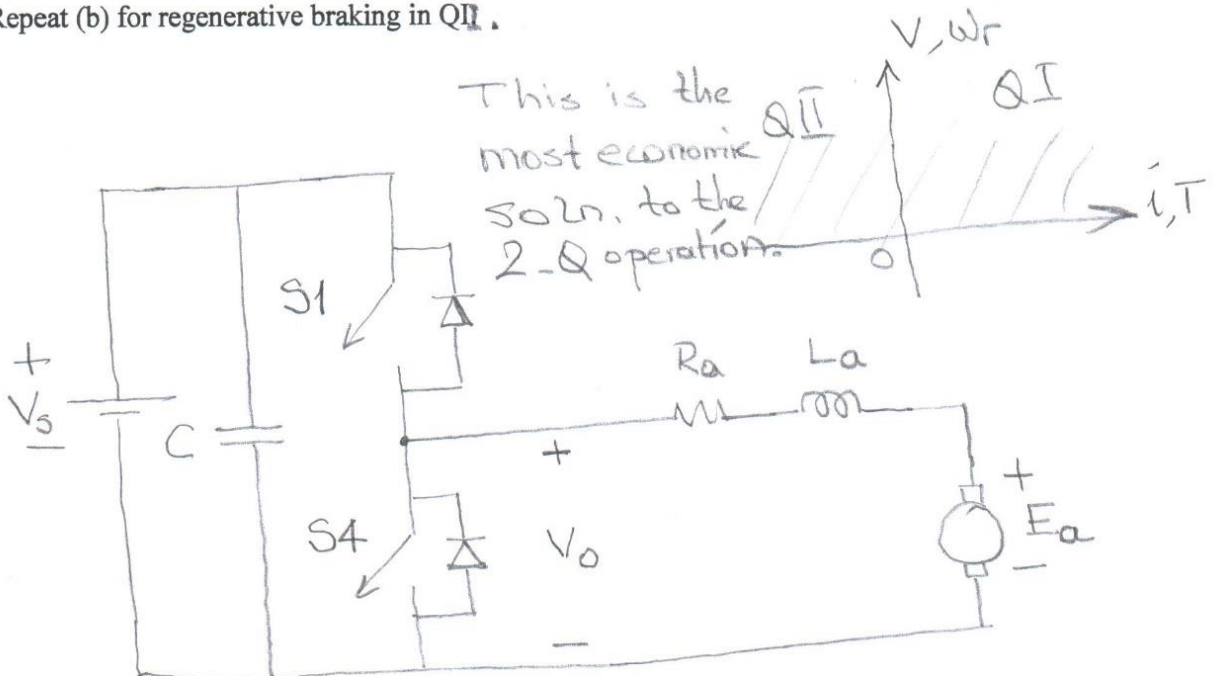 Repeat (b) for regenerative braking in QII.
V, Wr
This is the
QII
QI
most economic
soln. to the
i,T
2-Q operation.
O
S1
Ra
La
+
Vs
−
C
+
+
Ea
S4
Vo
−
−